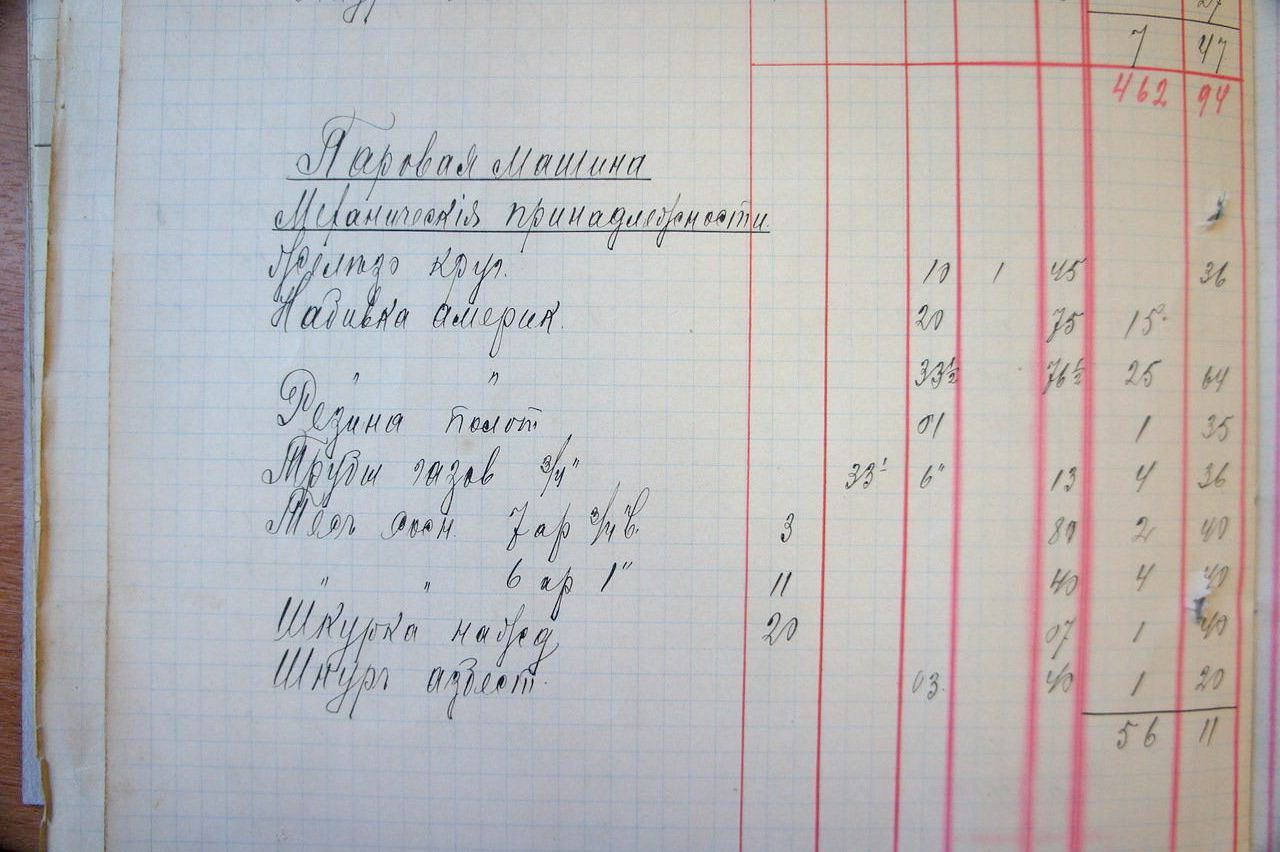 27
7 47
462 94
Паровая машина
Механическія принадлежности.
Желѣзо круг. 10 1 45 36
Набивка америк. 20 75 15
" " 33½ 76½ 25 64
Резина полот 01 1 35
Трубы газов 3/4" 33' 6" 13 4 36
Тесъ сосн. 7 ар 3/4 в. 3 80 2 40
" " 6 ар 1" 11 40 4 40
Шкурка нажд 20 07 1 40
Шнуръ азбест. 03 40 1 20
56 11